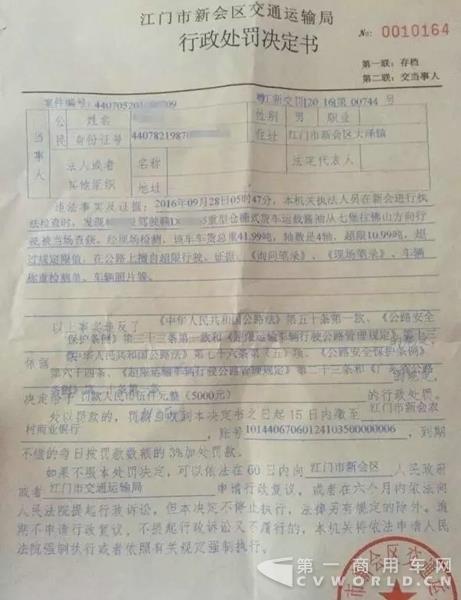 江门市新会区交通运输局
行政处罚决定书
№: 0010164
第一联：存档
第二联：交当事人
案件编号: 4407052016 709
粤江新交罚[20 16]第 00744 号
当事人
公民
姓名
性别 男 职业
身份证号 4407821987
住址 江门市新会区大泽镇
法人或者其他组织
名称
法定代表人
地址
违法事实及证据：2016年09月28日05时47分，本机关执法人员在新会进行执
法检查时，发现 驾驶粤J 5重型仓栅式货车运载酱油从七堡往佛山方向行
驶被当场查获。经现场检测，该车车货总重41.99吨，轴数是4轴，超限10.99吨，超
过规定限值，在公路上擅自超限行驶。证据：《询问笔录》、《现场笔录》、车辆
称重检测单、车辆照片等。
以上事实违反了《中华人民共和国公路法》第五十条第一款、《公路安全
保护条例》第三十三条第一款和《超限运输车辆行驶公路管理规定》第十三
依据《中华人民共和国公路法》第七十六条第（五）项、《公路安全保护条例》
第六十四条、《超限运输车辆行驶公路管理规定》第二十三条和《广东省公路
决定给予 罚款人民币伍仟元整（5000元） 的行政处罚。
处以罚款的，罚款当自收到本决定书之日起 15 日内缴至 江门市新会农
村商业银行 ，账号 10144067060124103500000006 ，到期
不缴的每日按罚款数额的 3%加处罚款。
如果不服本处罚决定，可以依法在 60 日内向 江门市新会区 人民政府
或者 江门市交通运输局 申请行政复议，或者在六个月内依法向
人民法院提起行政诉讼，但本决定不停止执行，法律另有规定的除外。逾
期不申请行政复议、不提起行政诉讼又不履行的，本机关将依法申请人民
法院强制执行或者依照有关规定强制执行。
第一商用车网
CVWORLD.CN